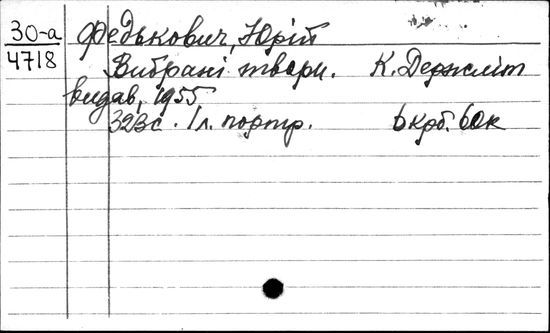 30-а
4718
Федькович, Юрій
Вибрані твори. К. Держліт
видав, 1955
323с. 1л. портр. 6крб. 60к